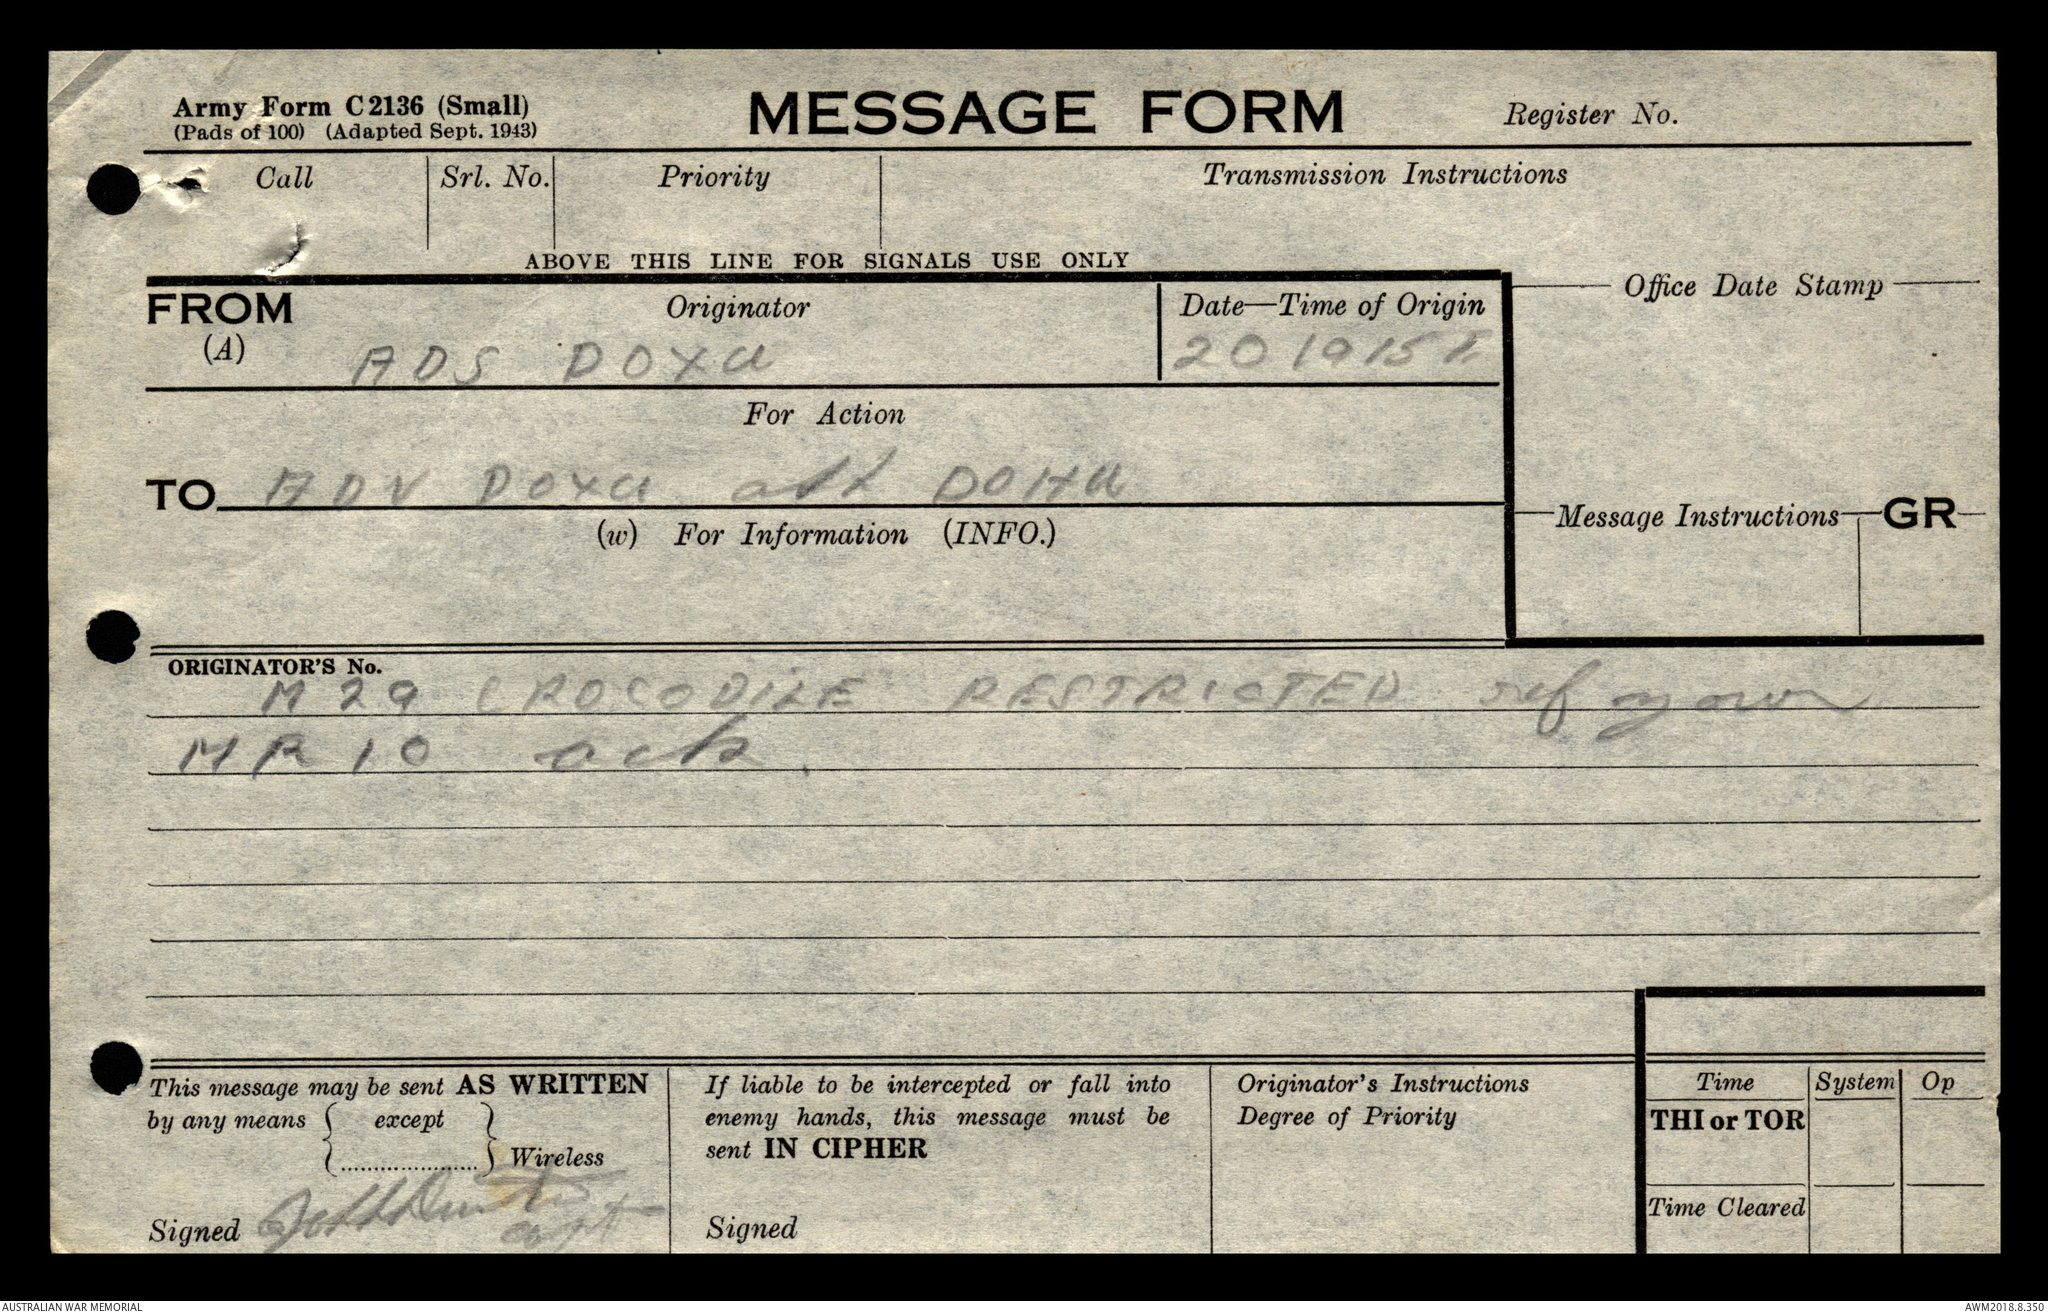 Army Form C2136 (Small)
(Pads of 100) (Adapted Sept. 1943)
MESSAGE FORM
Register No.
Call
Srl. No.
Priority
Transmission Instructions
ABOVE THIS LINE FOR SIGNALS USE ONLY
FROM
(A)
Originator
ADS DOXA
Date—Time of Origin
201915K
Office Date Stamp
For Action
TO ADV DOXA all DOHA
(w) For Information (INFO.)
Message Instructions
GR
ORIGINATOR'S No.
M29 CROCODILE RESTRICTED ref my our
MR 10 ack.
This message may be sent AS WRITTEN
by any means { except
{ ...................... } Wireless
Signed
capt
If liable to be intercepted or fall into
enemy hands, this message must be
sent IN CIPHER
Signed
Originator's Instructions
Degree of Priority
Time
System
Op
THI or TOR
Time Cleared
AUSTRALIAN WAR MEMORIAL
AWM2018.8.350